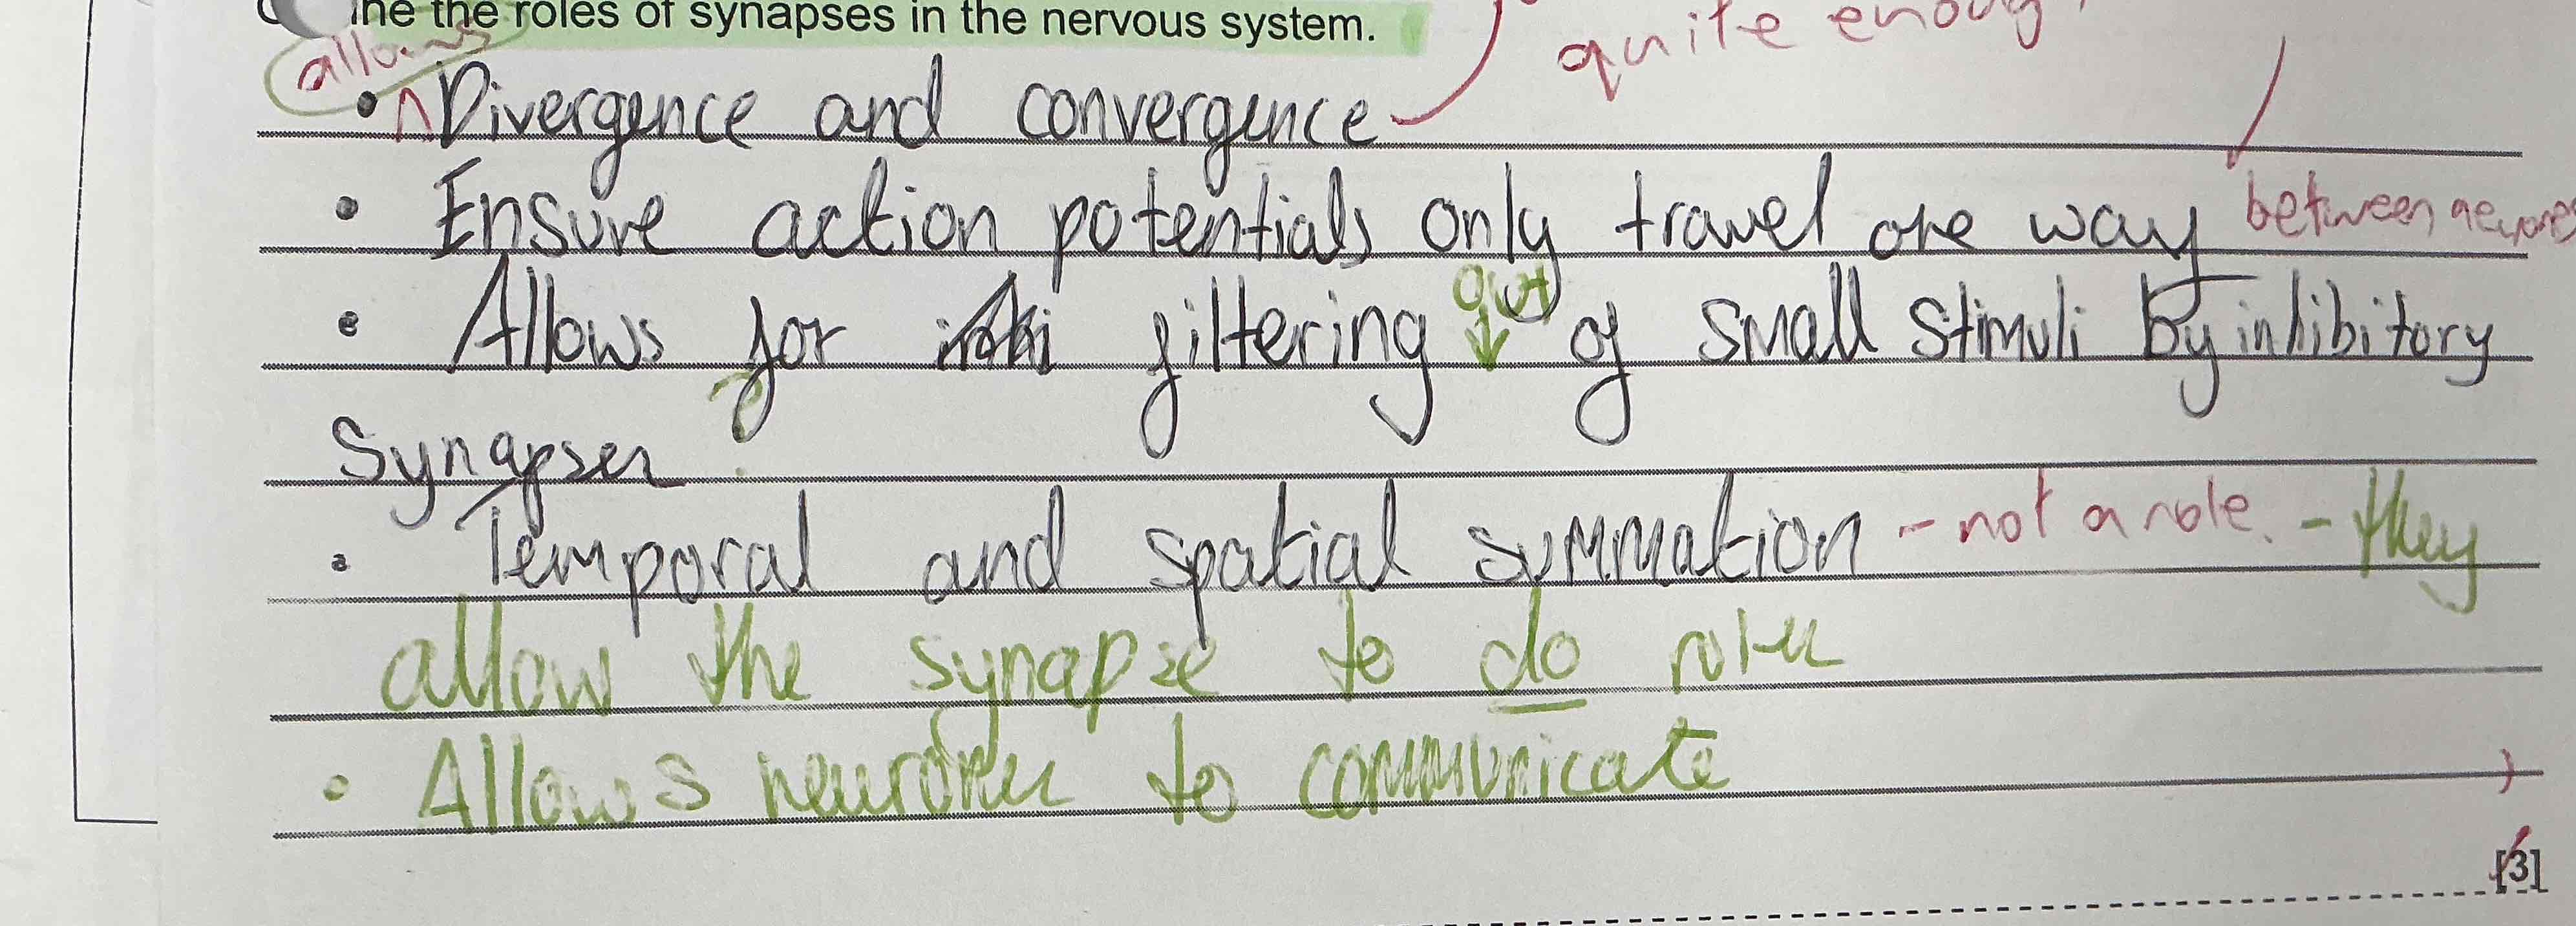 the roles of synapses in the nervous system.
quite
allows
• ^ Divergence and convergence
• Ensure action potentials only travel one way between neurones
out
• Allows for filtering of small stimuli by inhibitory
synapses
• Temporal and spatial summation - not a role. - they
allow the synapse to do roles
• Allows neurones to communicate
[3]